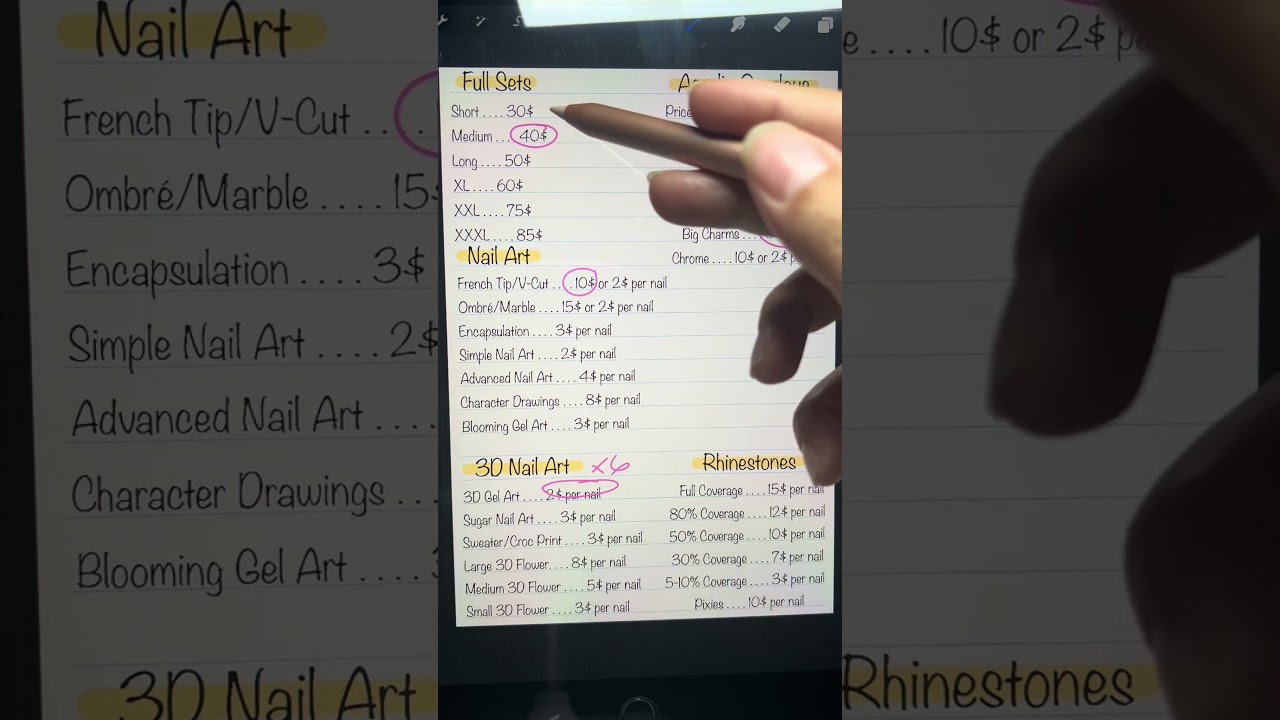 Nail Art
French Tip/V-Cut . . .
Ombré/Marble . . . . 15$
Encapsulation . . . . 3$
Simple Nail Art . . . . 2$
Advanced Nail Art . . . .
Character Drawings . . .
Blooming Gel Art . . . .
3D Nail Art
Full Sets
Short . . . . 30$
Medium . . . 40$
Long . . . . 50$
XL . . . . 60$
XXL . . . . 75$
XXXL . . . . 85$
Price
Big Charms . . .
Chrome . . . . 10$ or 2$ p
Nail Art
French Tip/V-Cut . . . 10$ or 2$ per nail
Ombré/Marble . . . . 15$ or 2$ per nail
Encapsulation . . . . 3$ per nail
Simple Nail Art . . . . 2$ per nail
Advanced Nail Art . . . . 4$ per nail
Character Drawings . . . . 8$ per nail
Blooming Gel Art . . . . 3$ per nail
3D Nail Art x6
3D Gel Art . . . . 2$ per nail
Sugar Nail Art . . . . 3$ per nail
Sweater/Croc Print . . . . 3$ per nail
Large 3D Flower . . . . 8$ per nail
Medium 3D Flower . . . . 5$ per nail
Small 3D Flower . . . . 3$ per nail
Rhinestones
Full Coverage . . . . 15$ per nail
80% Coverage . . . . 12$ per nail
50% Coverage . . . . 10$ per nail
30% Coverage . . . . 7$ per nail
5-10% Coverage . . . . 3$ per nail
Pixies . . . . 10$ per nail
e . . . . 10$ or 2$ pe
Rhinestones